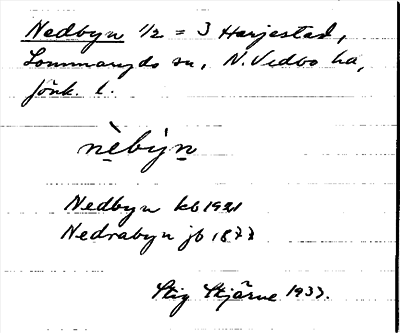 Nedbyn 1/2 = 3 Harjestad,
Lommaryds sn, N. Vedbo hd,
Jönk. l.
nèbyn
Nedbyn kb 1921
Nedrabyn jb 1877
Stig Stjärne 1937.